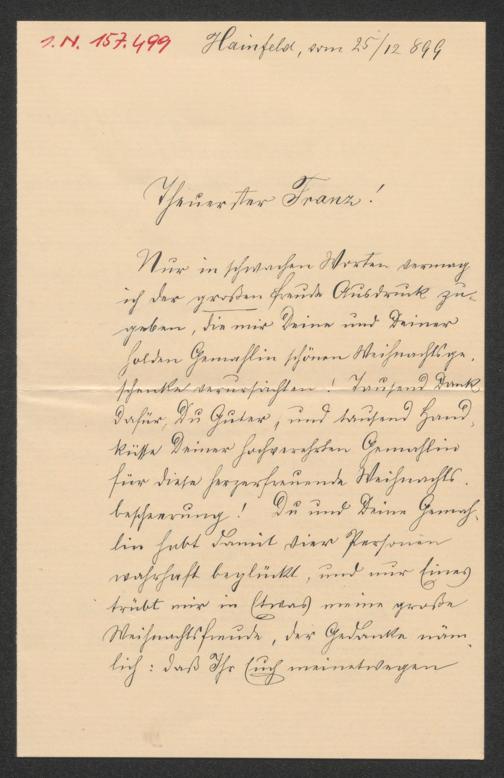 I. N. 157.499
Hainfeld, vom 25/12 899
Theuerster Franz!
Nur in schwachen Worten vermag
ich der großen Freude Ausdruck zu-
geben, die mir Deine und Deiner
holden Gemahlin schönen Weihnachtsge-
schenke verursachten! Tausend Dank
dafür, Du Guter, und tausend Hand-
küsse Deiner hochverehrten Gemahlin
für diese herzerfreuende Weihnachts-
bescheerung! Du und Deine Gemah-
lin habt damit vier Personen
wahrhaft beglückt, und nur Eines
trübt mir in Etwas meine große
Weihnachtsfreude, der Gedanke näm-
lich: daß Ihr Euch meinetwegen